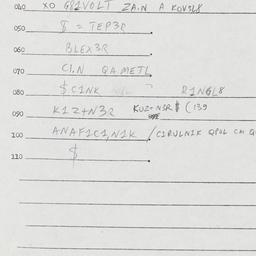 040 XO GR1VOLT ZA.N A KOVSL8
050 $ = TEP3R
060 BLEX3R
070 C1.N QA.METL
080 $ C1NK R1NGL8
090 K1Z+N3R KUZ+N3R $ (139
100 ANAF1C1,N1K / C1RULN1K
110 $